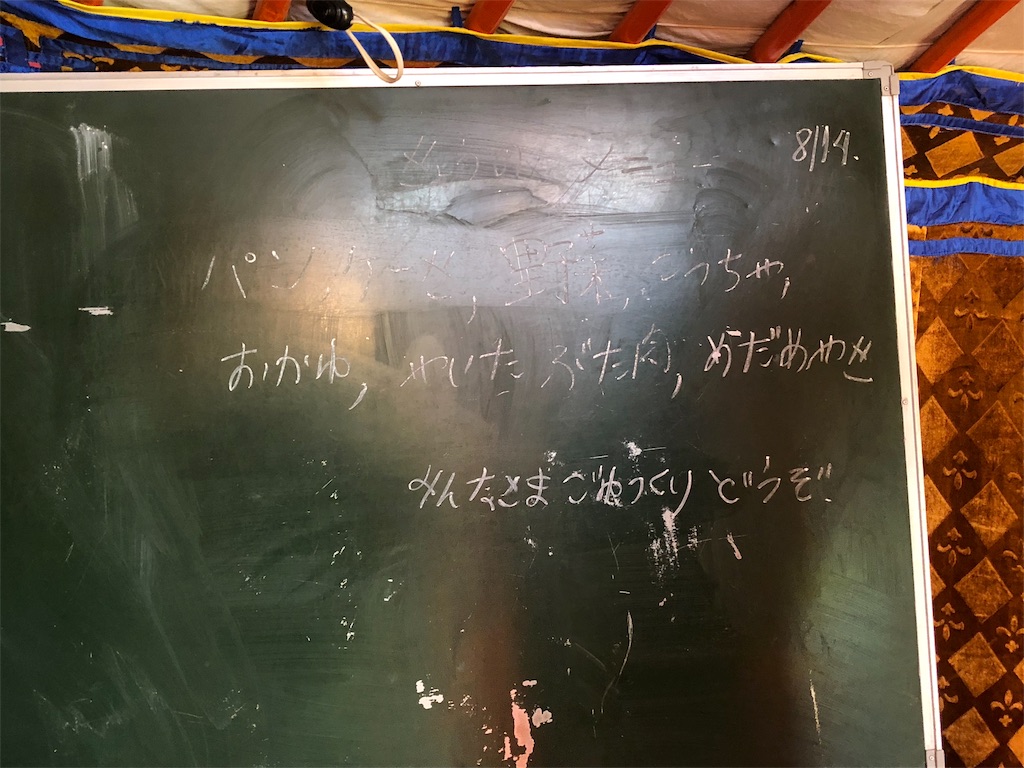 8/14.
パンケーキ, 野菜, こうちゃ,
おかゆ, やいた ぶた肉, めだめやき
みんなさま ごゆっくり どうぞ.